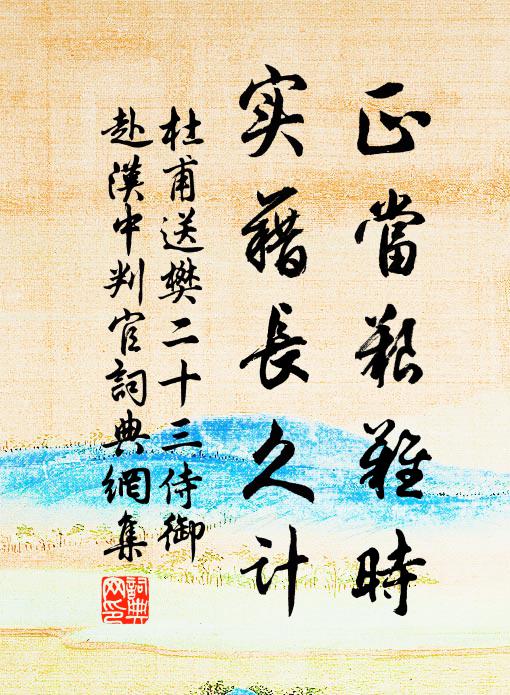 正當艱難時
实藉長久計
杜甫送樊二十三侍御
赴漢中判官詞典網集
詞典